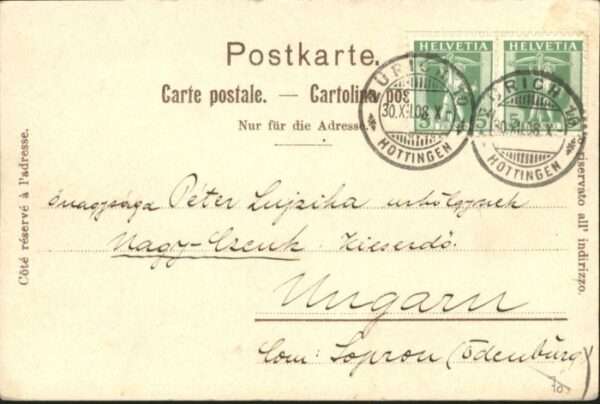 Postkarte.
Carte postale. — Cartolina pos
Nur für die Adresse
Côté réservé à l'adresse.
riservato all' indirizzo.
HELVETIA
HELVETIA
5
5
ZÜRICH
30.XI.08.X
HOTTINGEN
ZÜRICH
30.XI.08.X
HOTTINGEN
őnagysága Péter Lujzika urhölgynek
Nagy-Czenk. Kiserdő.
Ungarn
Com: Sopron (Ödenburg)